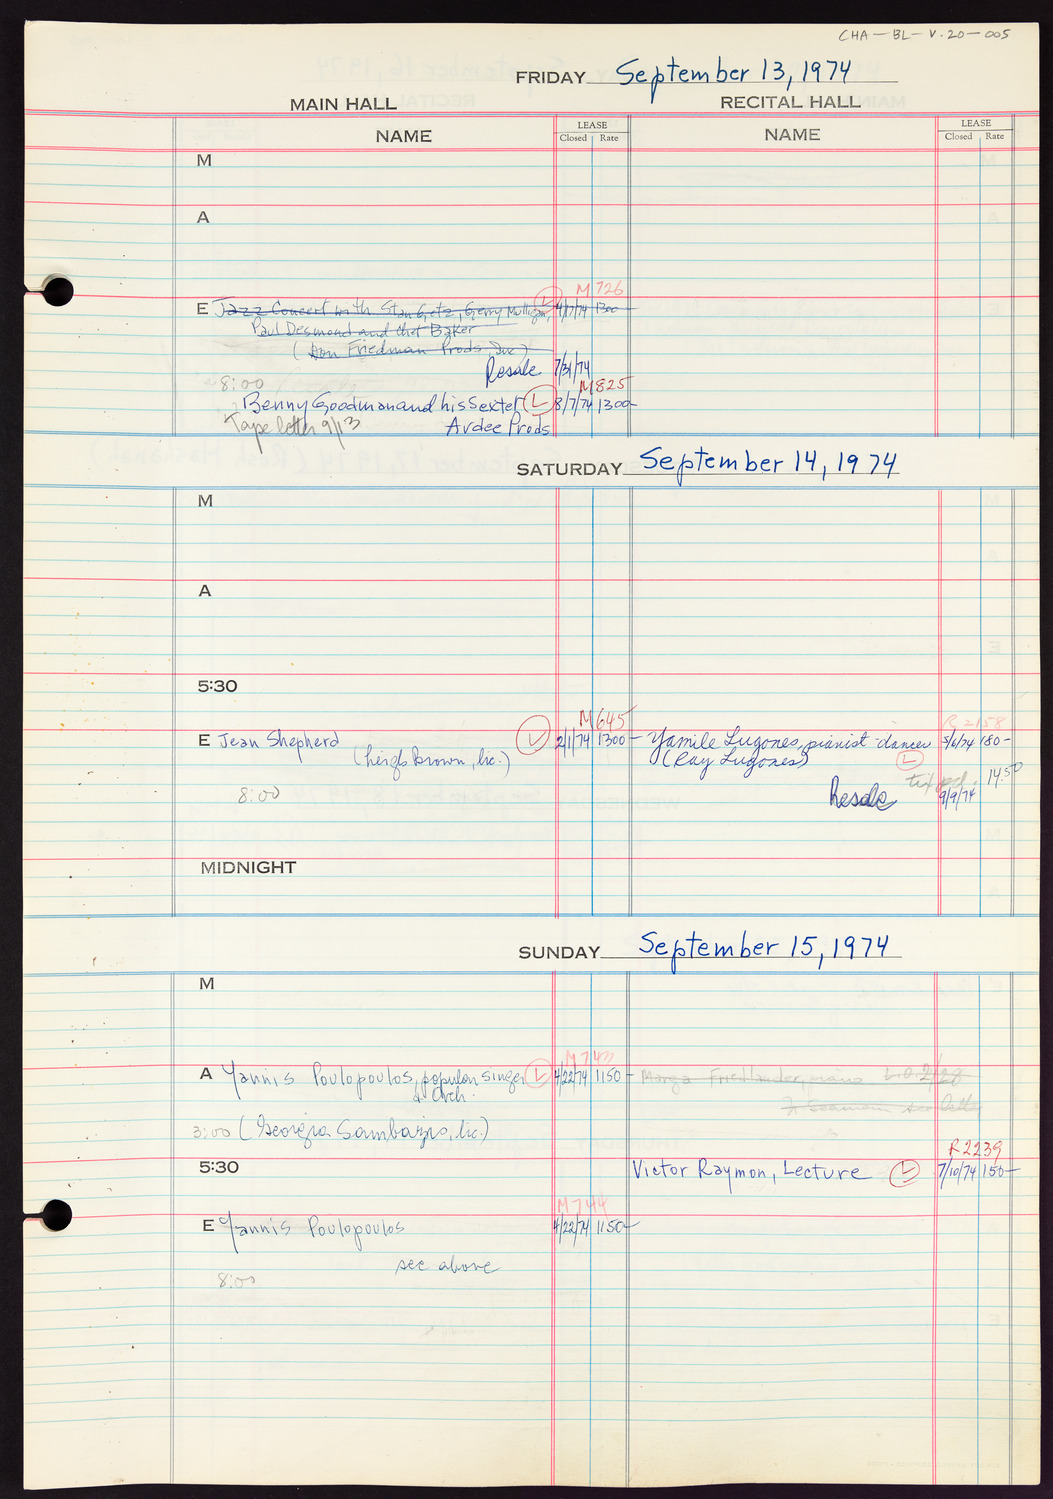 CHA-BL-V.20-005
FRIDAY September 13, 1974
MAIN HALL RECITAL HALL
NAME LEASE Closed Rate NAME LEASE Closed Rate
M
A
M 726
E Jazz Concert with Stan Getz, Gerry Mulligan, L 4/17/74 1300-
Paul Desmond and Chet Baker
(Don Friedman Prods, Inc)
Resale 7/31/74
8:00 M825
Benny Goodman and his Sextet L 8/7/74 1300-
Tape letter 9/13 Ardee Prods
SATURDAY September 14, 1974
M
A
5:30
M 645 R 2158
E Jean Shepherd L 2/1/74 1300- Yamile Lugones, pianist-dancer 5/6/74 180-
(Leigh Brown, lic.) (Ray Lugones) L
8:00 Resale 9/9/74 14.50
MIDNIGHT
SUNDAY September 15, 1974
M
M 743
A Yannis Poulopoulos, popular singer L 4/22/74 1150- Marga Friedlander, piano L.O. 2/28
& Orch.
3:00 (Georgia Sambazis, lic.)
R2239
5:30 Victor Raymon, Lecture L 7/10/74 150-
M744
E Yannis Poulopoulos 4/22/74 1150-
see above
8:00